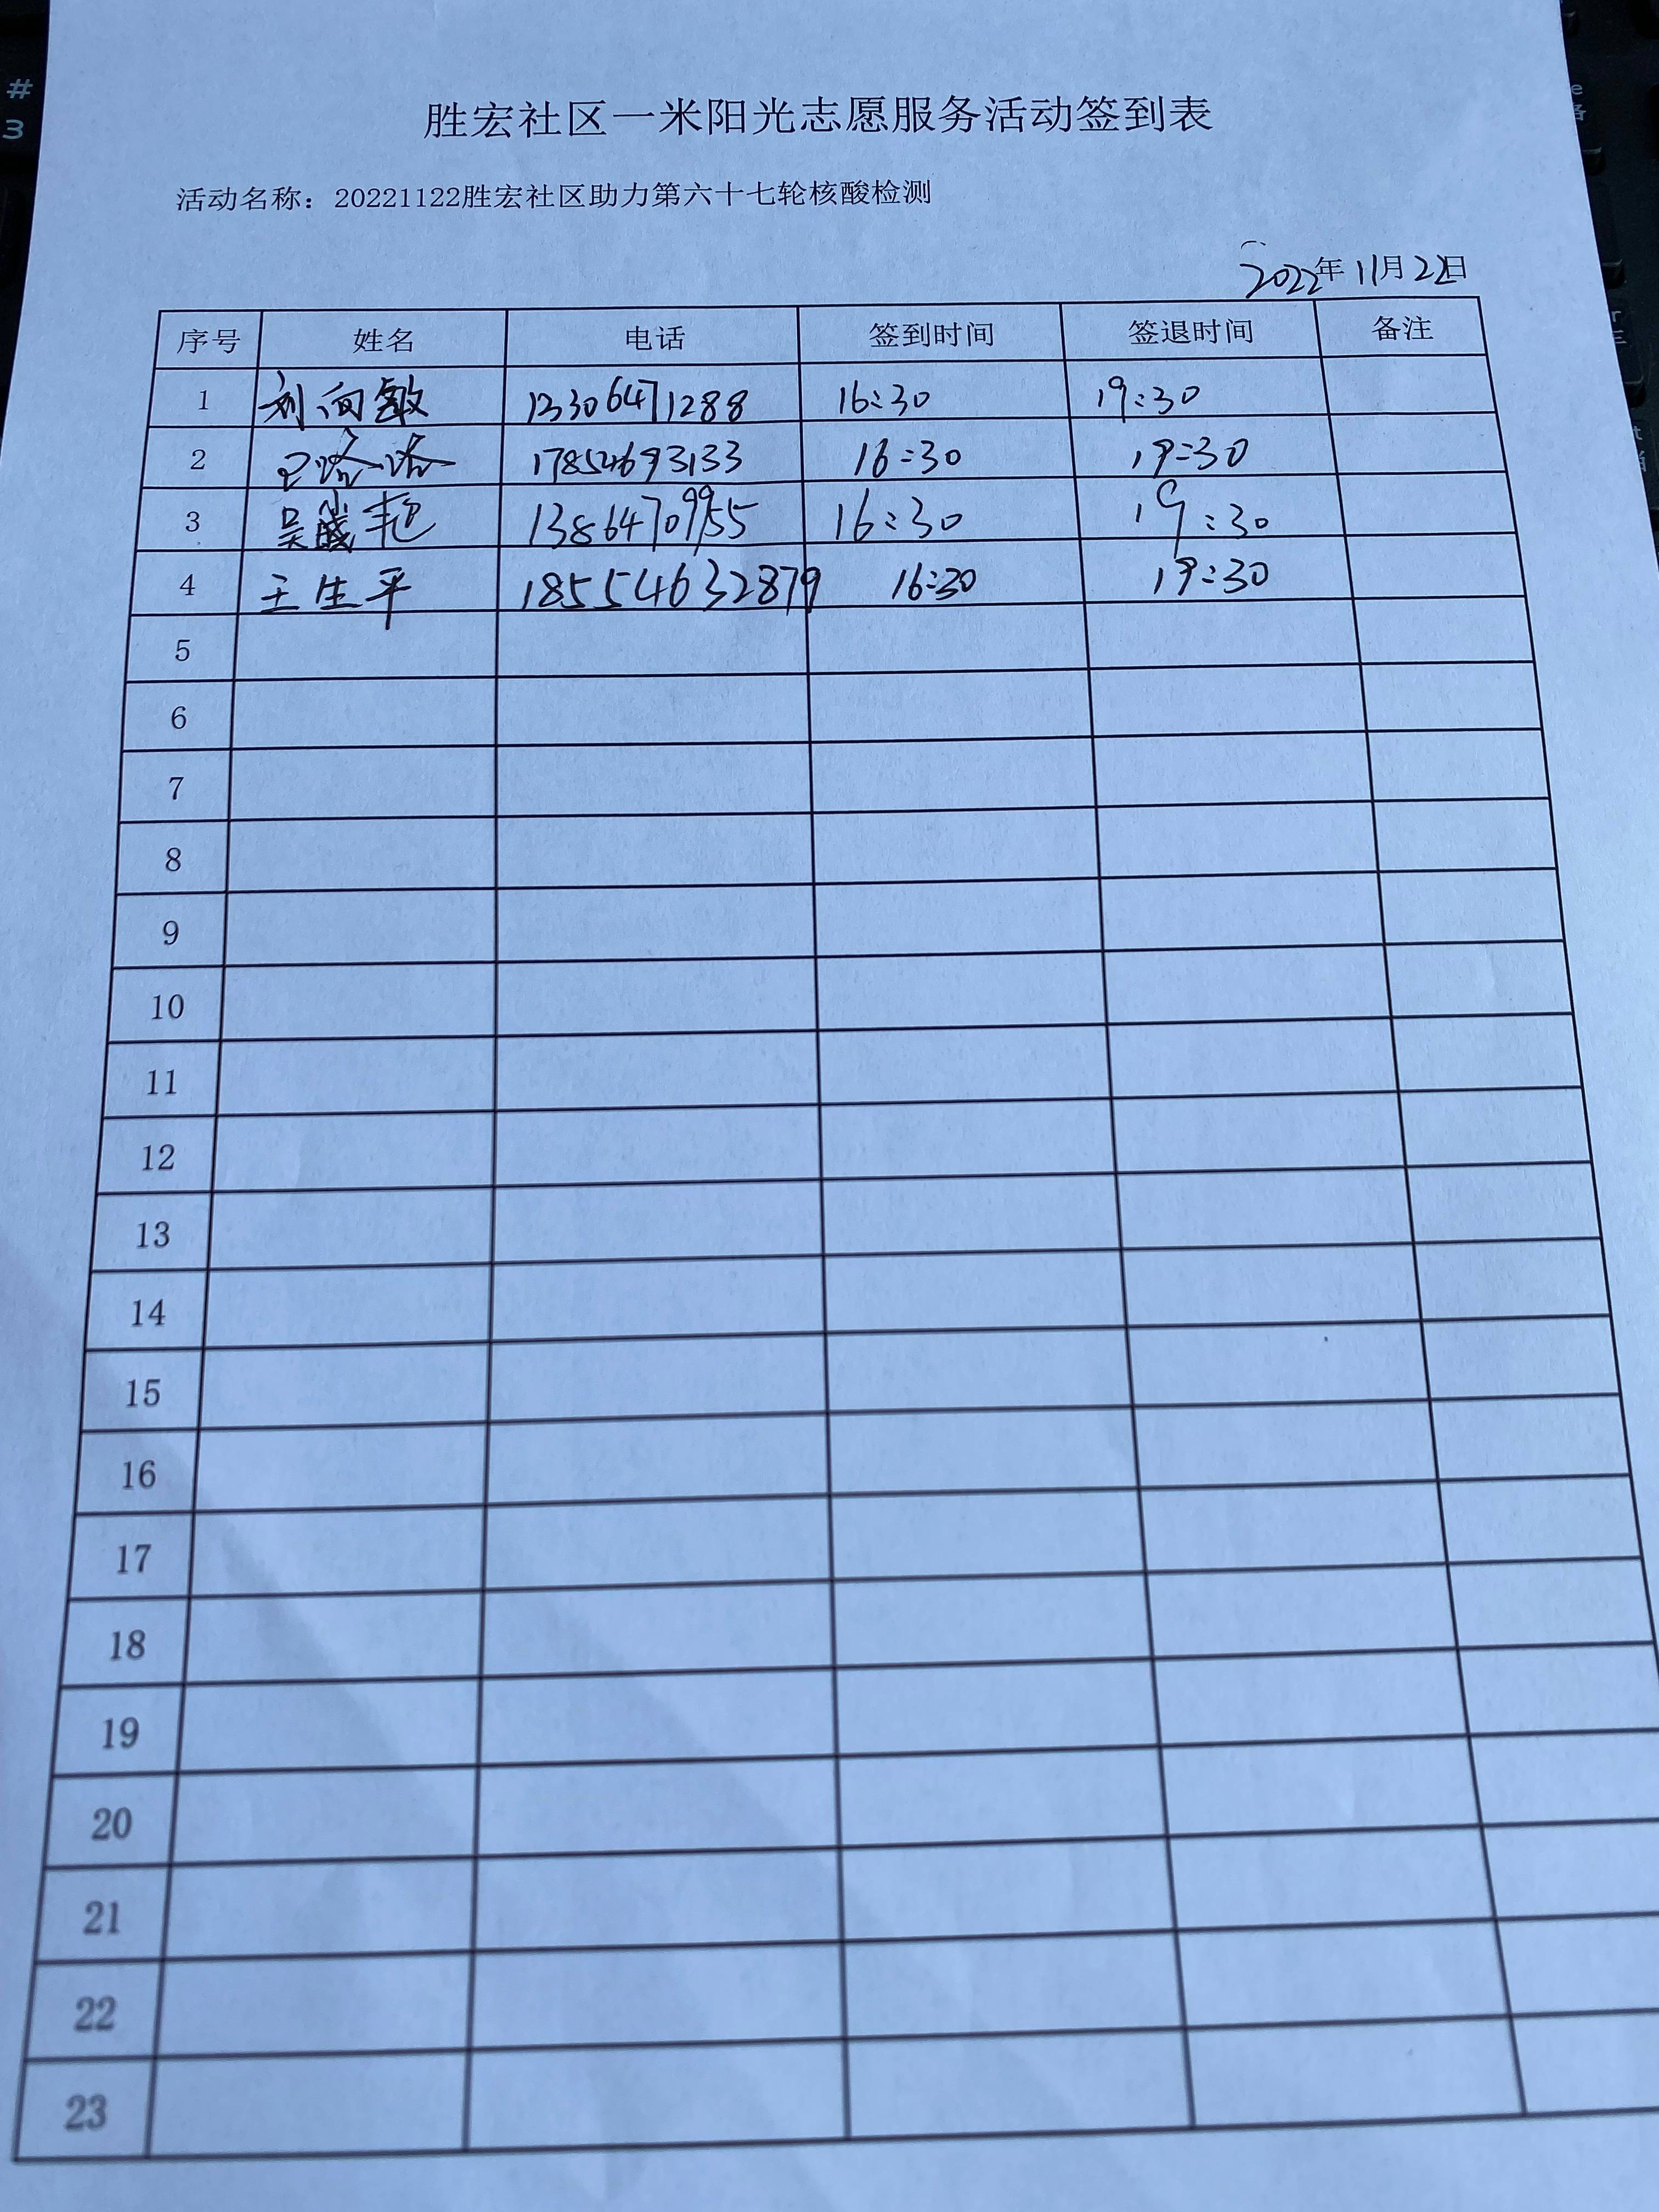 胜宏社区一米阳光志愿服务活动签到表
活动名称：20221122胜宏社区助力第六十七轮核酸检测
2022年11月22日
序号 姓名 电话 签到时间 签退时间 备注
1 刘向敏 13306471288 16:30 19:30
2 17854693133 16:30 19:30
3 吴 艳 13864709955 16:30 19:30
4 王生平 18554632879 16:30 19:30
5
6
7
8
9
10
11
12
13
14
15
16
17
18
19
20
21
22
23